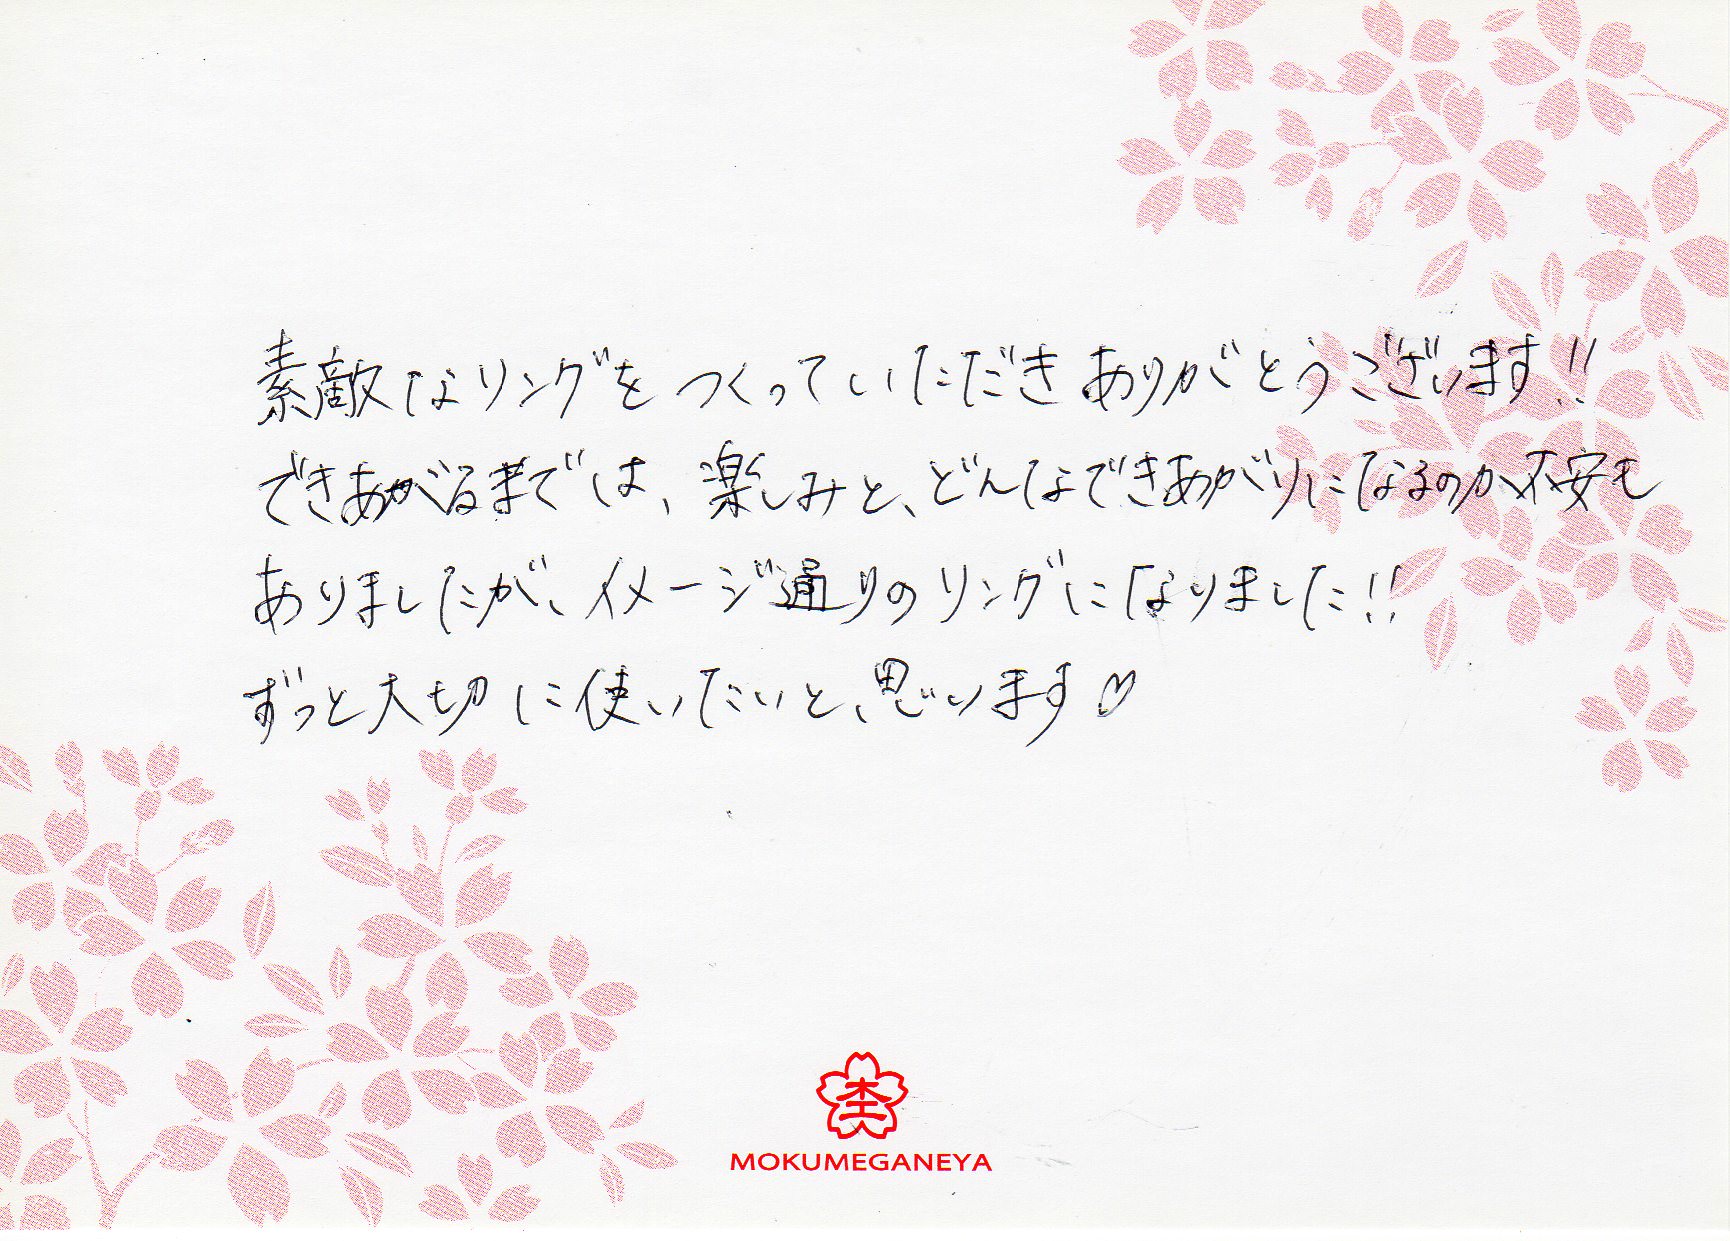 素敵なリングをつくっていただきありがとうございます!!
できあがるまでは、楽しみと、どんなできあがりになるのか不安も
ありましたが、イメージ通りのリングになりました!!
ずっと大切に使いたいと、思います♡
杢
MOKUMEGANEYA